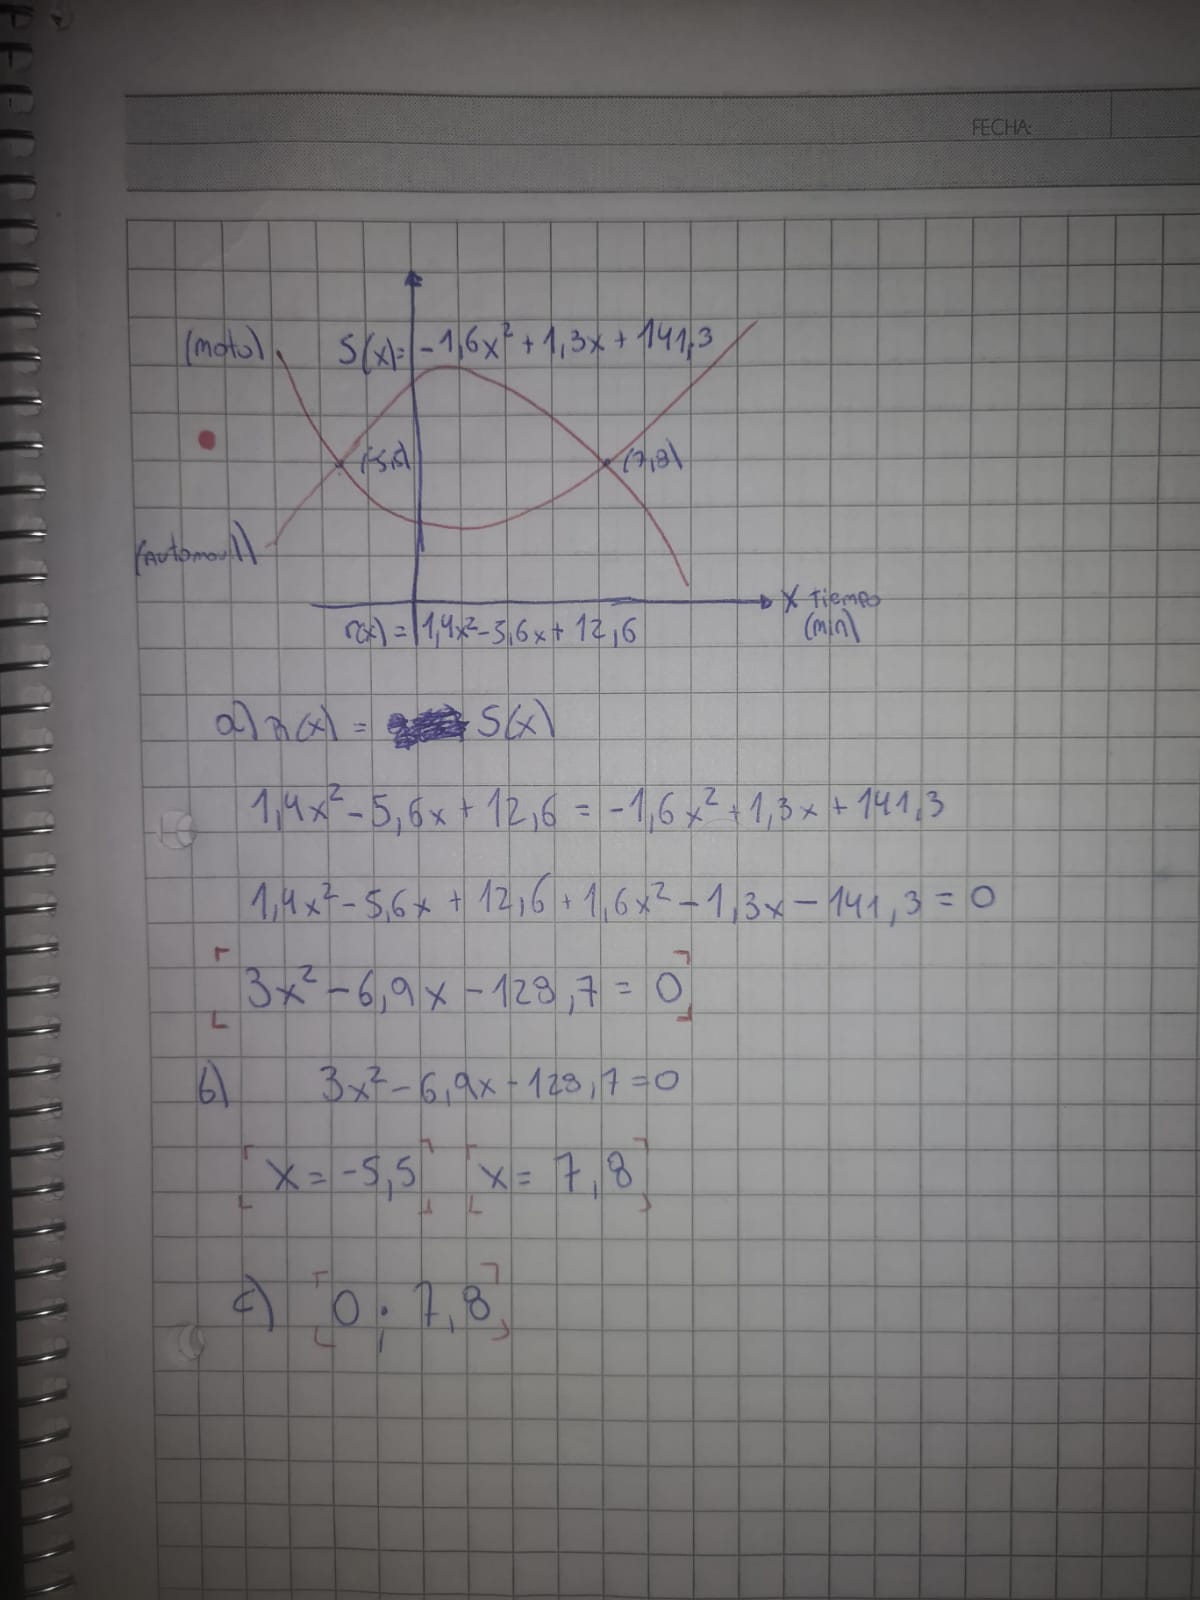 FECHA:
(moto)
S(x)= -1,6x² + 1,3x + 141,3
(-5,5)
(7,8)
(Automovil)
X Tiempo
(min)
r(x) = 1,4x² - 5,6x + 12,6
a) r(x) = S(x)
1,4x² - 5,6x + 12,6 = -1,6x² + 1,3x + 141,3
1,4x² - 5,6x + 12,6 + 1,6x² - 1,3x - 141,3 = 0
3x² - 6,9x - 128,7 = 0
b) 3x² - 6,9x - 128,7 = 0
x = -5,5 x = 7,8
c) 0 ; 7,8